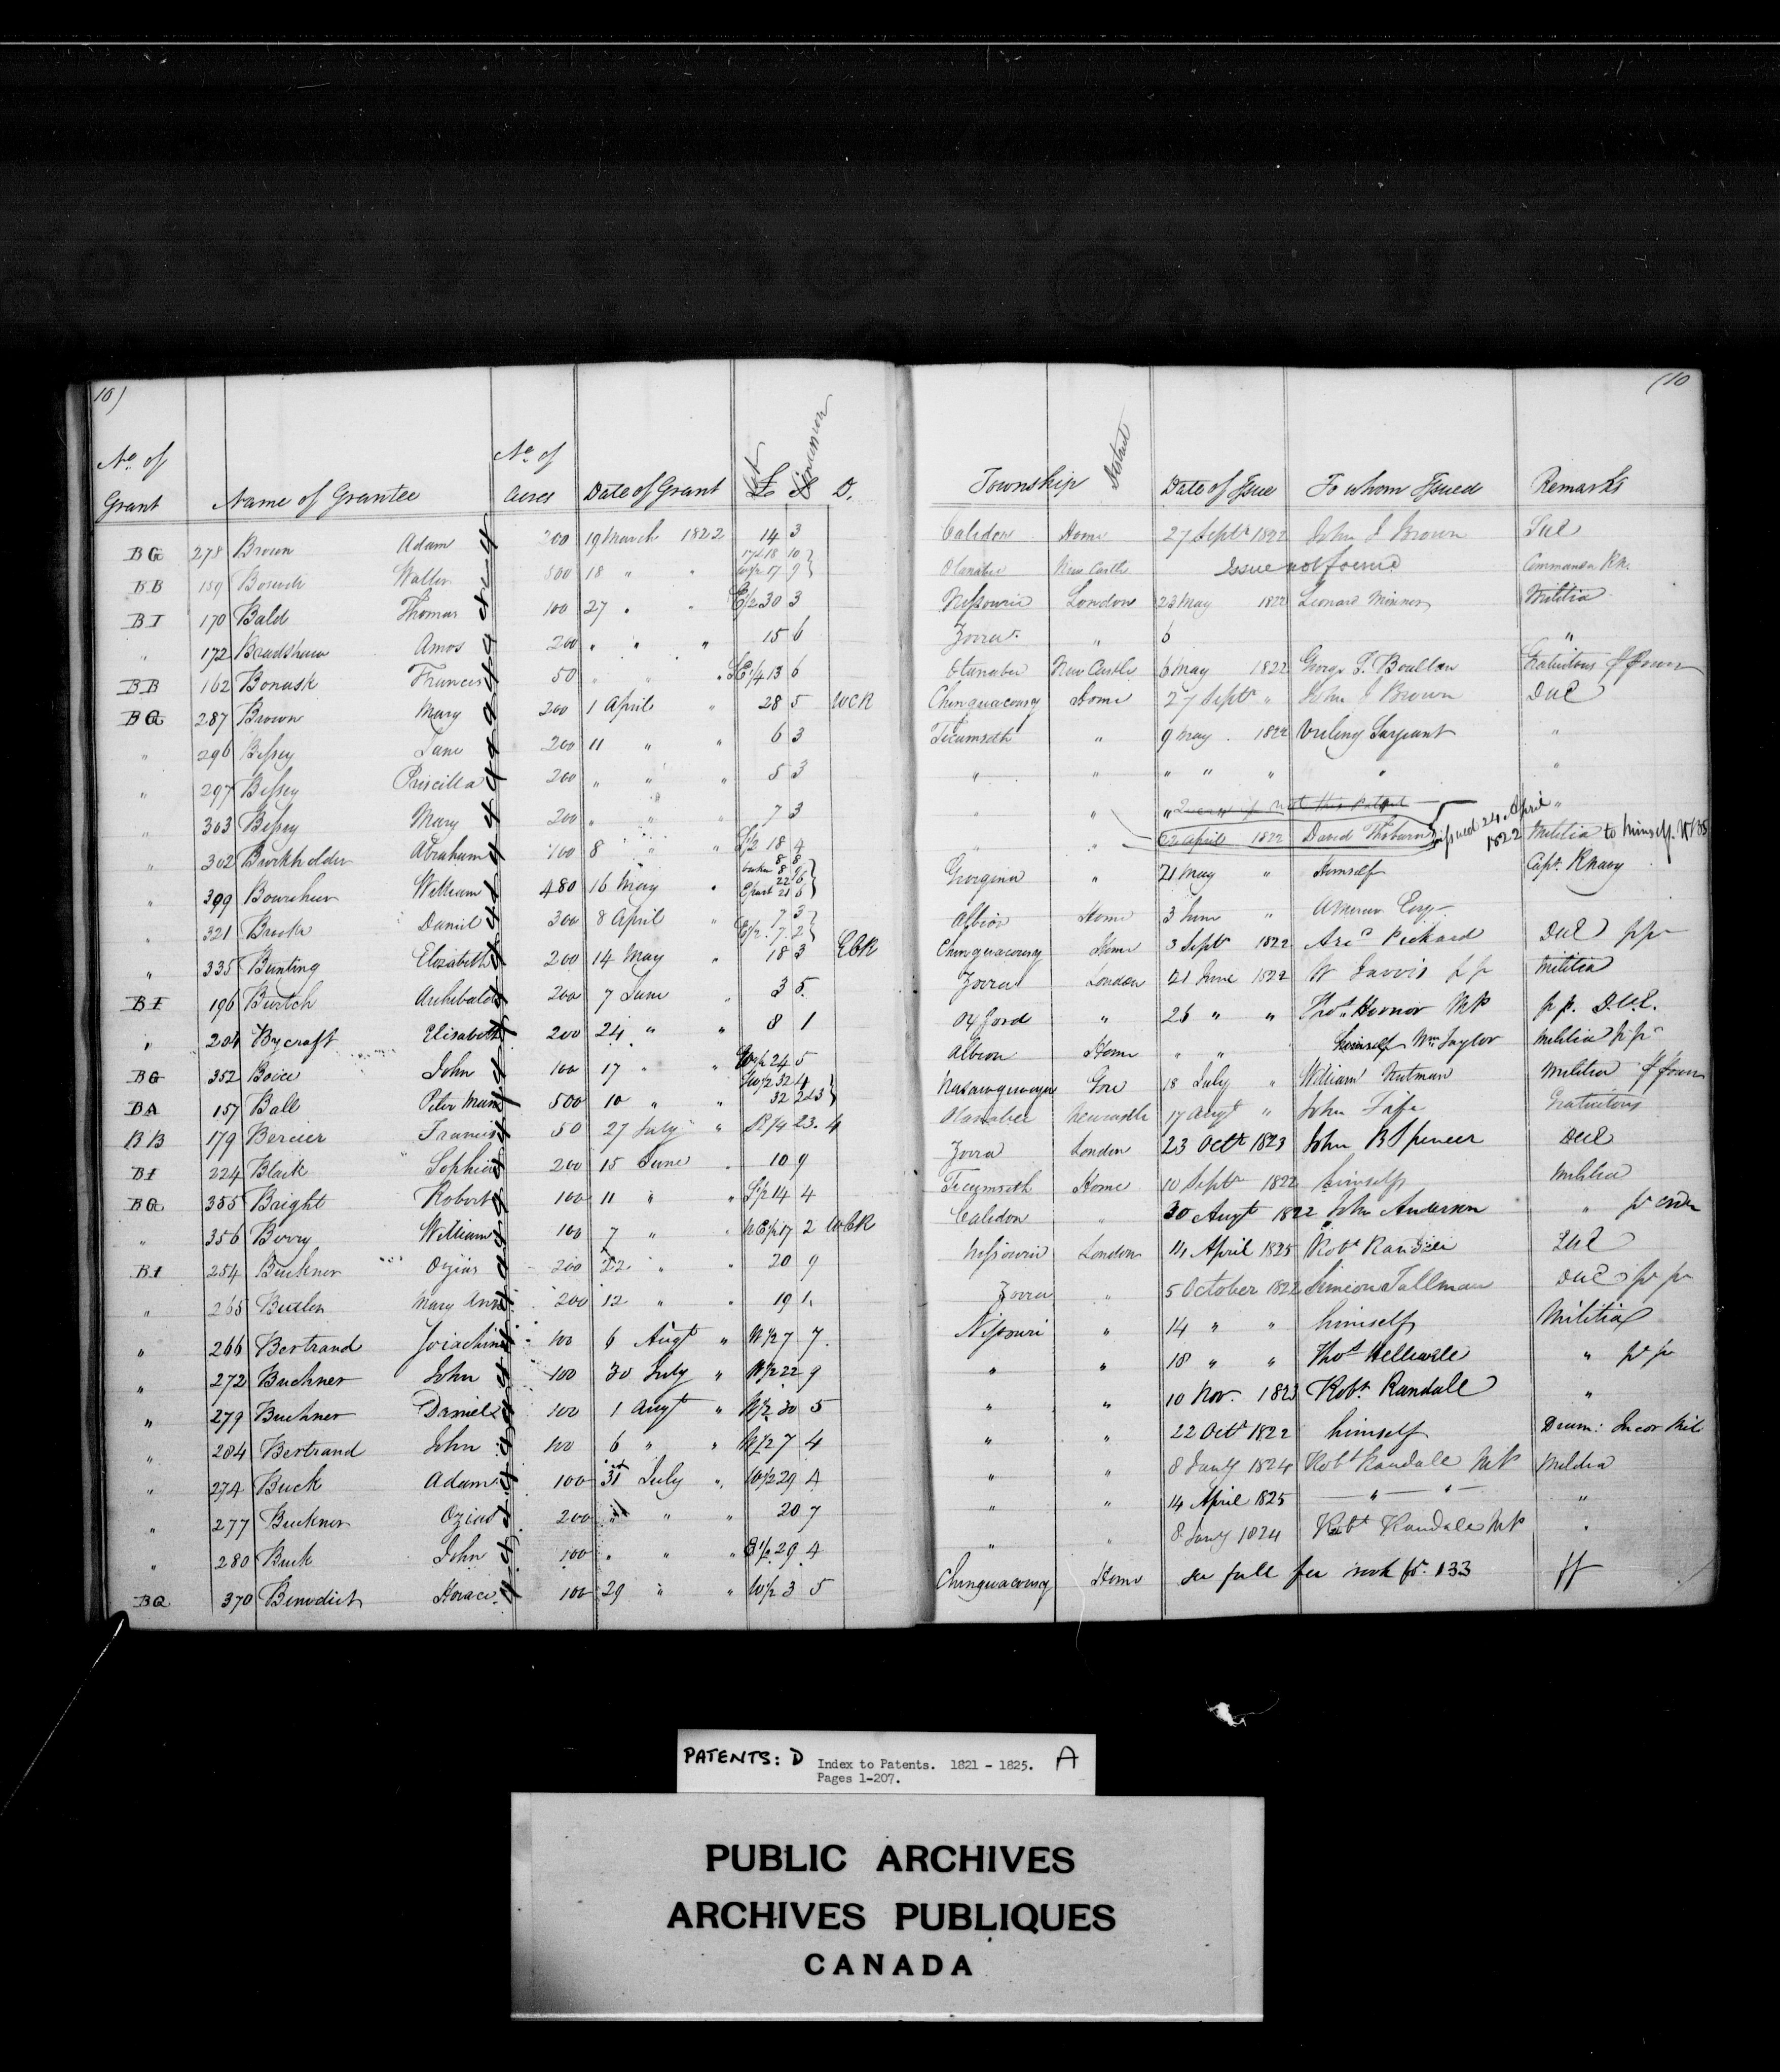 10) (10
No. of Grant Name of Grantee No. of Acres Date of Grant Lot Concession D. Township District Date of Issue To whom Issued Remarks
BG 278 Brown Adam 200 19 March 1822 14 3 Calidon Home 27 Septr 1822 John J Brown
BB 159 Walter 800 18 " " Otanabee New Castle Issue not found Commander RN.
BI 170 Bald Thomas 100 27 " " E1/2 30 3 Nissouri London 23 May 1822 Militia
" 172 Bradshaw Amos 200 " " " 15 6 Zorra " 6 "
BB 162 Bonush Francis 50 " " " SE1/4 13 6 Otanabee New Castle 6 May 1822 George S. Boulton Gratuitous
BG 287 Brown Mary 200 1 April " 28 5 WCR Chinguacousy Home 27 Septr " John J Brown DUE
" 296 Bessey Jane 200 11 " " 6 3 Tecumseth " 9 May 1822 Sargeant "
" 297 Bessey Priscilla 200 " " " 5 3 " " " " " " "
" 303 Bessey Mary 200 " " " 7 3 " " "
" 302 Burkholder Abraham 100 8 " " S1/2 18 4 " " 22 April 1822 David Thorburn issued 24 April 1822 Militia to himself.
" 399 Bourchier William 480 16 May " Georgina " 21 May " Himself Capt. R Navy
" 321 Brooke Daniel 300 8 April " 7 3 E1/2 7 2 Albion Home 3 June "
" 335 Bunting Elizabeth 200 14 May " 18 3 ECR Chinguacousy Home 3 Septr 1822 Pickard DUE pp
BI 196 Burtch Archibald 200 7 June " 3 5. Zorra London 21 June 1822 W Jarvis pp Militia
" 204 Bycraft Elisabeth 200 24 " " 8 1 Oxford " 26 " " Thos Hornor MP p p. DUE.
BG 352 Boice John 100 17 " " W1/2 24 5 Albion Home " " himself Wm Taylor Militia pp
BA 157 Ball Peter Mann 500 10 " " 32 2&3 Nassagaweya Gore 18 July " William Nutman Militia
BB 179 Bercier Francis 50 27 July " 23. 4 Otanabee Newcastle 17 Augt " John Gratuitous
BI 224 Blaik Sophia 200 15 June " 10 9 Zorra London 23 Octr 1823 John B Spencer DUE
BG 355 Bright Robert 100 11 " " S1/2 14 4 Tecumseth Home 10 Septr 1822 himself Militia
" 356 Berry William 100 7 " " NE1/2 17 2 WCR Calidon " 30 Augt 1822 John Anderson " pr order
BI 254 Buckner Ozias 200 22 " " 20 9 Nissouri London 14 April 1825 Robt Randall DUE
" 265 Butler Mary Ann 200 12 " " 19 1. Zorra " 5 October 1822 Simeon Tallman DUE pr pr
" 266 Bertrand Joiachim 100 6 Augt " N1/2 7 7. Nissouri " 14 " " himself Militia
" 272 Buchner John 100 30 July " N1/2 22 9 " " 18 " " Thos " pr pr
" 279 Buchner Daniel 100 1 Augt " N1/2 30 5 " " 10 Nov. 1823 Robt Randall "
" 284 Bertrand John 100 6 " " N1/2 7 4 " " 22 Octr 1822 himself Drum: Incor Mil
" 274 Buck Adam 100 31st July " W1/2 29 4 " " 8 Jany 1824 Robt Randall MP Militia
" 277 Buckner Ozias 200 " " " 20 7 " " 14 April 1825 " " "
" 280 Buck John 100 " " " E1/2 29 4 " " 8 Jany 1824 Robt Randall MP "
BG 370 Benedict Horace 100 29 " " W1/2 3 5 Chinguacousy Home see full fee book fo. 133 ff
PATENTS: D Index to Patents. 1821 - 1825. A
Pages 1-207.
PUBLIC ARCHIVES
ARCHIVES PUBLIQUES
CANADA